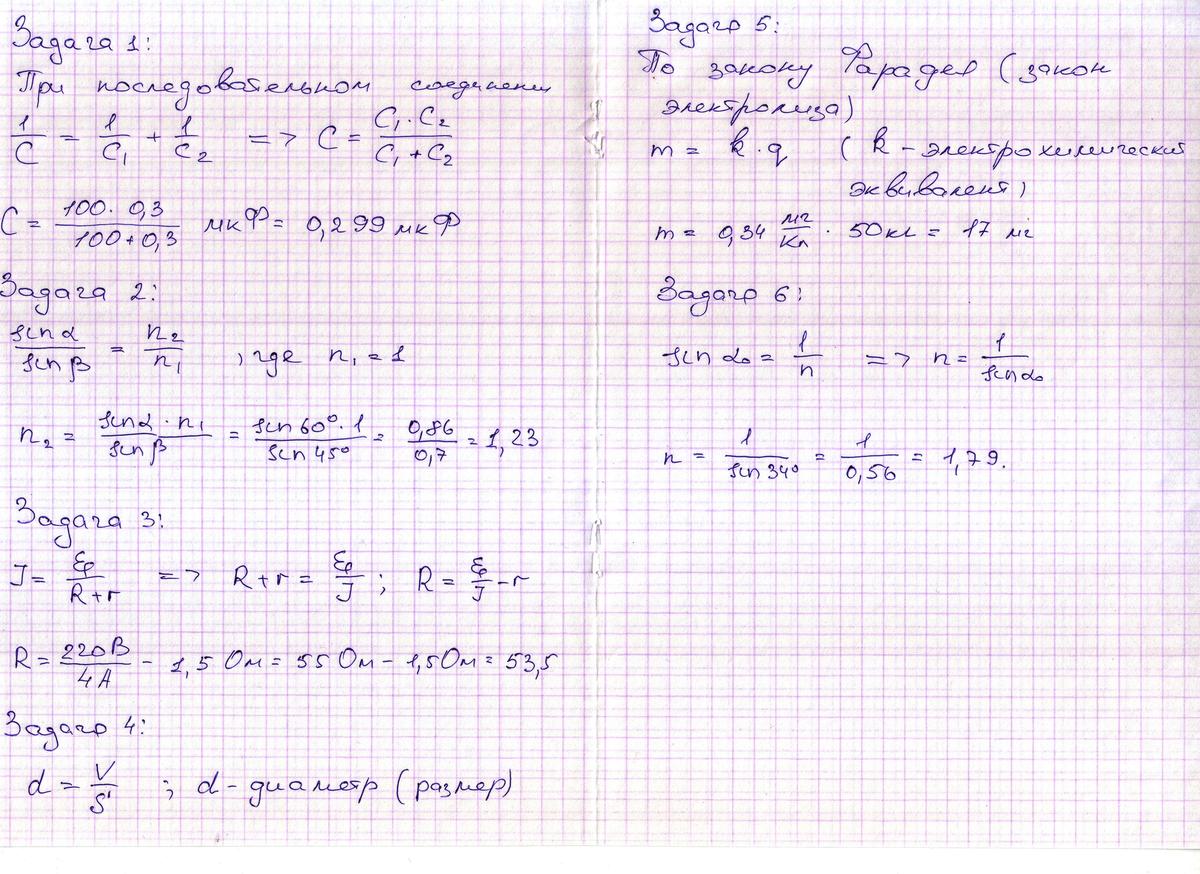 Задача 1:
При последовательном соединении
1/C = 1/C₁ + 1/C₂ => C = C₁·C₂/C₁+C₂
C = 100·0,3/100+0,3 мкФ = 0,299 мкФ
Задача 2:
sin α/sin β = n₂/n₁, где n₁ = 1
n₂ = sin α · n₁/sin β = sin 60°·1/sin 45° = 0,86/0,7 = 1,23
Задача 3:
J = ℰ/R+r => R+r = ℰ/J; R = ℰ/J - r
R = 220В/4А - 1,5 Ом = 55 Ом - 1,5 Ом = 53,5
Задача 4:
d = V/S; d - диаметр (размер)
Задача 5:
По закону Фарадея (закон
электролиза)
m = k·q (k - электрохимический
эквивалент)
m = 0,34 мг/Кл · 50 кл = 17 мг
Задача 6:
sin α₀ = 1/n => n = 1/sin α₀
n = 1/sin 34° = 1/0,56 = 1,79.